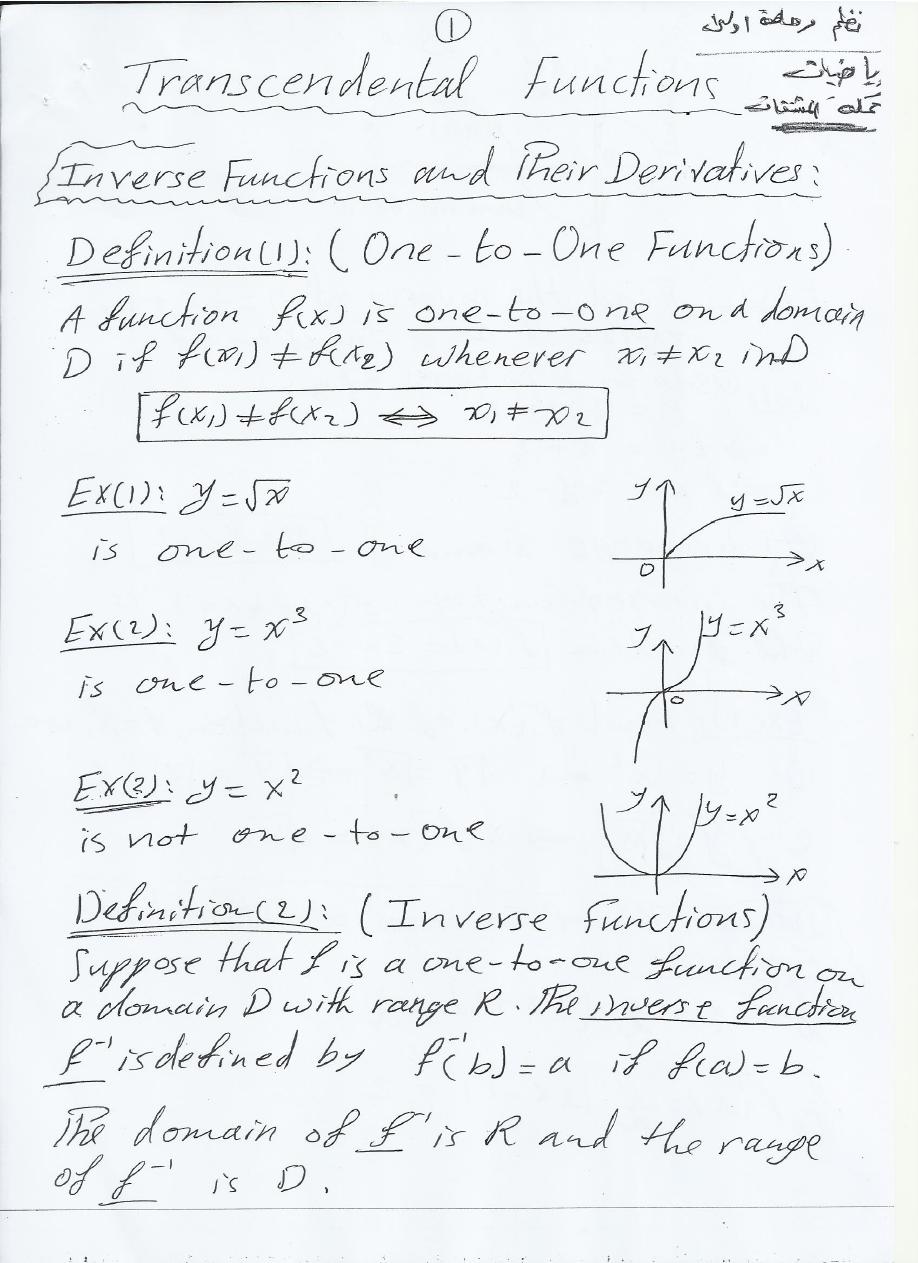 ①
نظم مرحلة اولى
Transcendental Functions
رياضيات
تكملة المشتقات
Inverse Functions and Their Derivatives:
Definition(1): ( One-to-One Functions)
A function f(x) is one-to-one on a domain
D if f(x₁) ≠ f(x₂) whenever x₁ ≠ x₂ in D
f(x₁) ≠ f(x₂) ⟺ x₁ ≠ x₂
Ex(1): y = √x
is one-to-one
y
y = √x
0
x
Ex(2): y = x³
is one-to-one
y
y = x³
0
x
Ex(3): y = x²
is not one-to-one
y
y = x²
x
Definition(2): ( Inverse Functions)
Suppose that f is a one-to-one function on
a domain D with range R. The inverse function
f⁻¹ is defined by f⁻¹(b) = a if f(a) = b.
The domain of f⁻¹ is R and the range
of f⁻¹ is D.